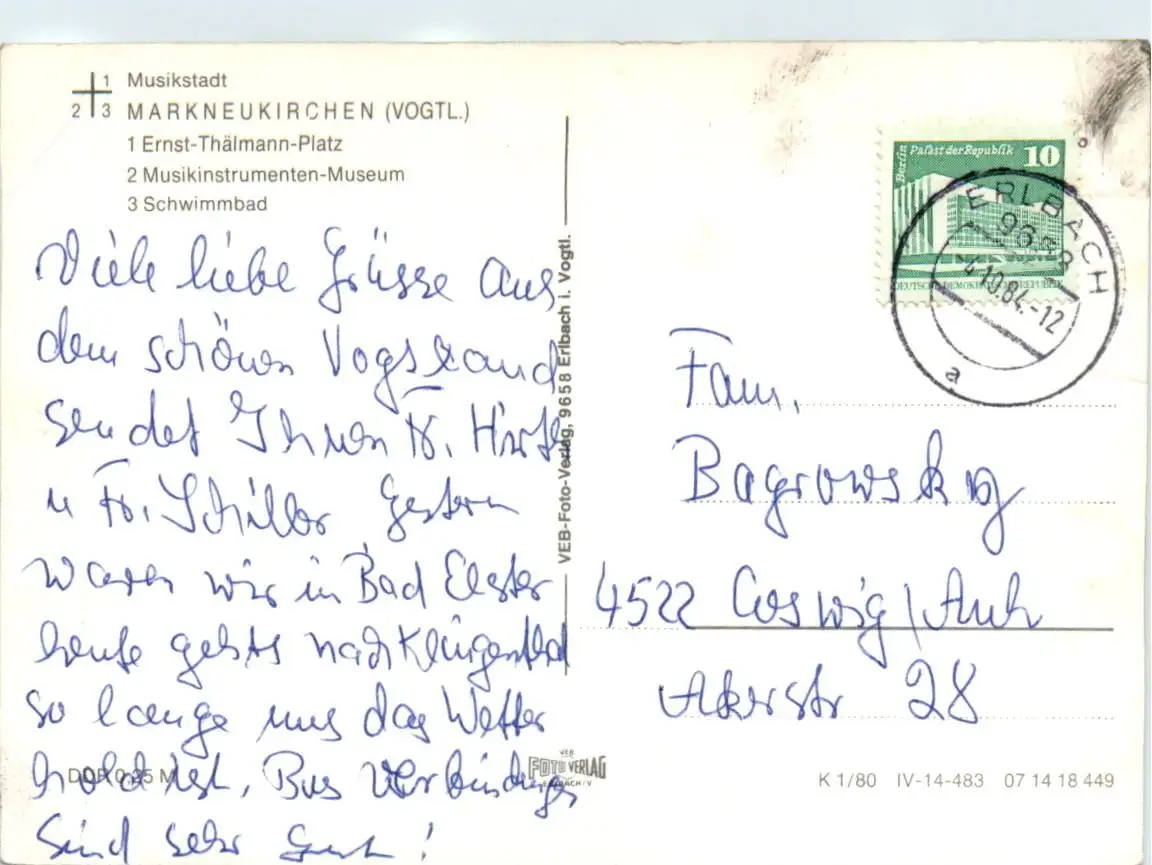 1 Musikstadt
2 3 MARKNEUKIRCHEN (VOGTL.)
1 Ernst-Thälmann-Platz
2 Musikinstrumenten-Museum
3 Schwimmbad
Viele liebe Grüsse aus
dem schönen Vogtland
sendet Ihnen Fr.
u Fr. Schiller gestern
waren wir in Bad Elster
heute gehts nach Klingenthal
so lange uns das Wetter
hold ist, Bus Verbindungen
sind sehr gut!
DDR 0,25 M
VEB-Foto-Verlag, 9658 Erlbach i. Vogtl.
VEB
FOTO VERLAG
ERLBACH/V
Berlin Palast der Republik 10
DEUTSCHE DEMOKRATISCHE REPUBLIK
ERLBACH
4.10.84.-12
a
Fam.
Bagrowsky
4522 Coswig/Anh
Akerstr 28
K 1/80 IV-14-483 07 14 18 449